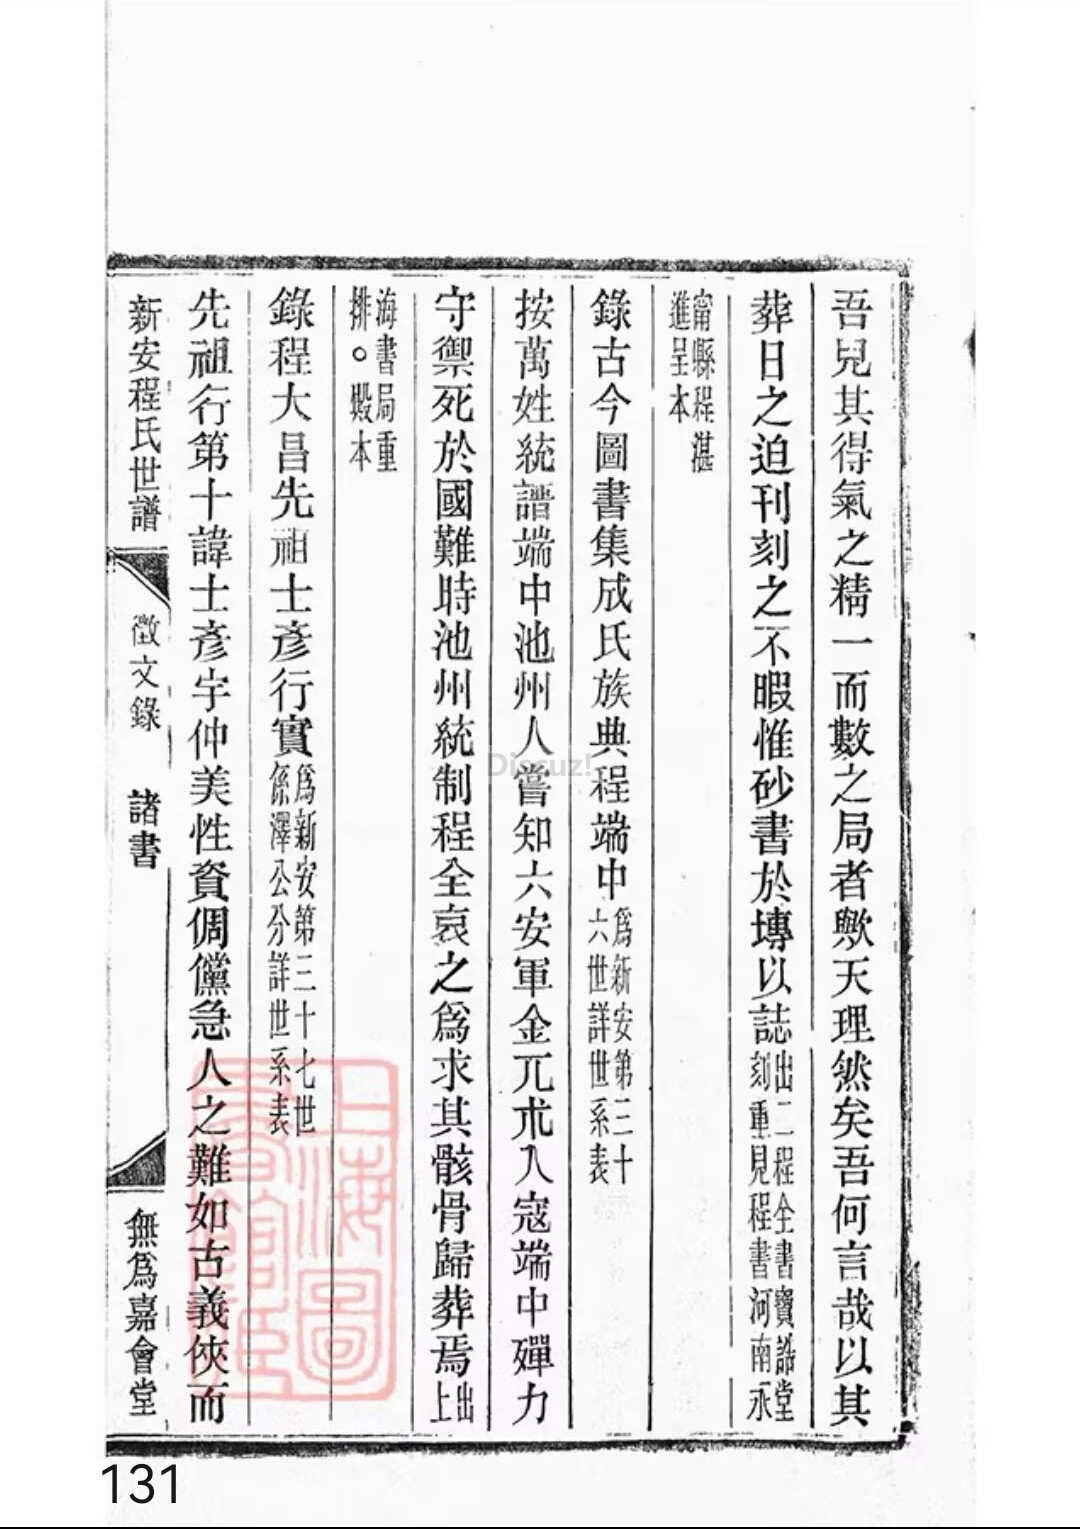 吾兒其得氣之精一而數之局者歟天理然矣吾何言哉以其
葬日之迫刊刻之不暇惟砂書於塼以誌
出二程全書寶誥堂
刻重見程書河南永
甯縣程湛
進呈本
錄古今圖書集成氏族典程端中
爲新安第三十
六世詳世系表
按萬姓統譜端中池州人嘗知六安軍金兀朮入寇端中殫力
守禦死於國難時池州統制程全哀之爲求其骸骨歸葬焉
出
上
海書局重
排。殿本
錄程大昌先祖士彥行實
爲新安第三十七世
係澤公分詳世系表
先祖行第十諱士彥字仲美性資倜儻急人之難如古義俠而
新安程氏世譜
徵文錄
諸書
無爲嘉會堂
上海圖
書館藏
Discuz!
131